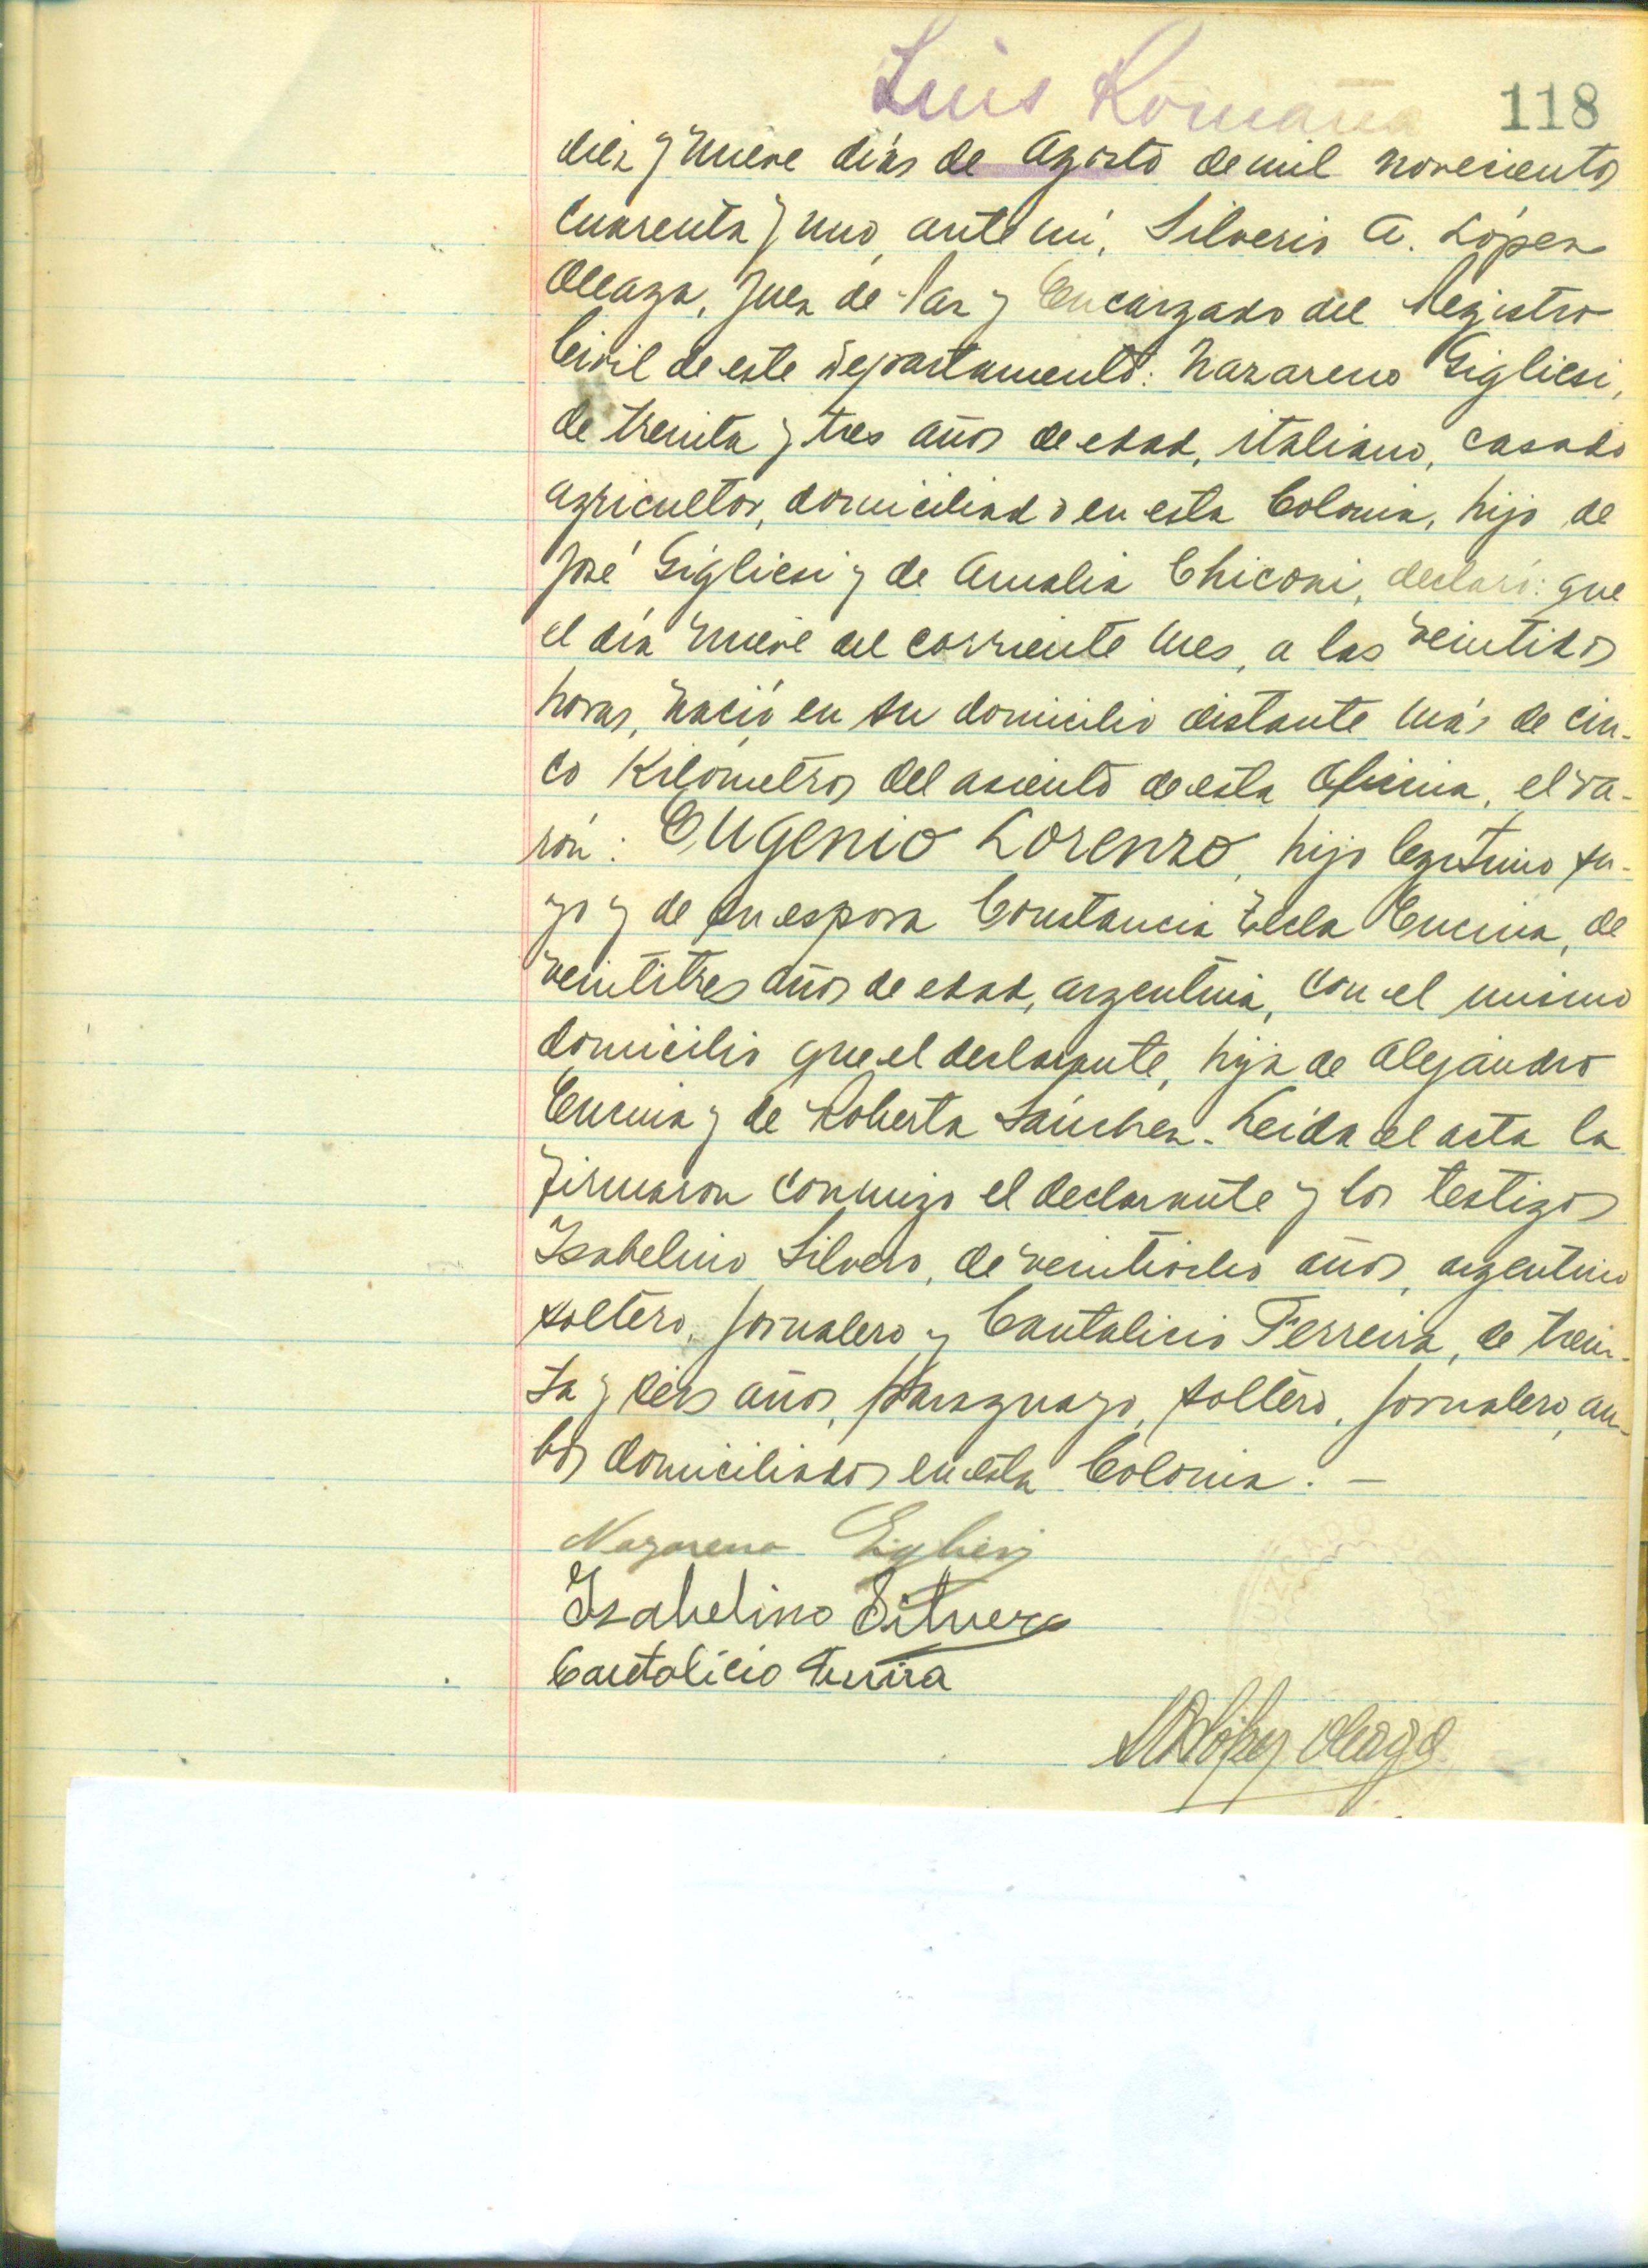 Luis Romaña 118
diez y nueve días de Agosto de mil novecientos
cuarenta y uno, ante mí, Silverio A. López
Alcaza, Juez de Paz y Encargado del Registro
Civil de este Departamento: Nazareno Gigliesi,
de treinta y tres años de edad, italiano, casado
agricultor, domiciliado en esta Colonia, hijo de
José Gigliesi y de Amalia Chiconi, declaró: que
el día nueve del corriente mes, a las veintidos
horas, nació en su domicilio distante más de cin-
co Kilómetros del asiento de esta Oficina, el va-
rón: Eugenio Lorenzo, hijo legítimo su-
yo y de su esposa Constancia Encina, de
veintitres años de edad, argentina, con el mismo
domicilio que el declarante, hija de Alejandro
Encina y de Roberta Sánchez.- Leída el acta la
firmaron conmigo el declarante y los testigos
Isabelino Silvero, de veintiocho años, argentino
soltero, jornalero y Cantalicio Ferreira, de trein-
ta y seis años, paraguayo, soltero, jornalero, am-
bos domiciliados en esta Colonia. -
Nazareno Gigliesi
Isabelino Silvero
Cantalicio
López